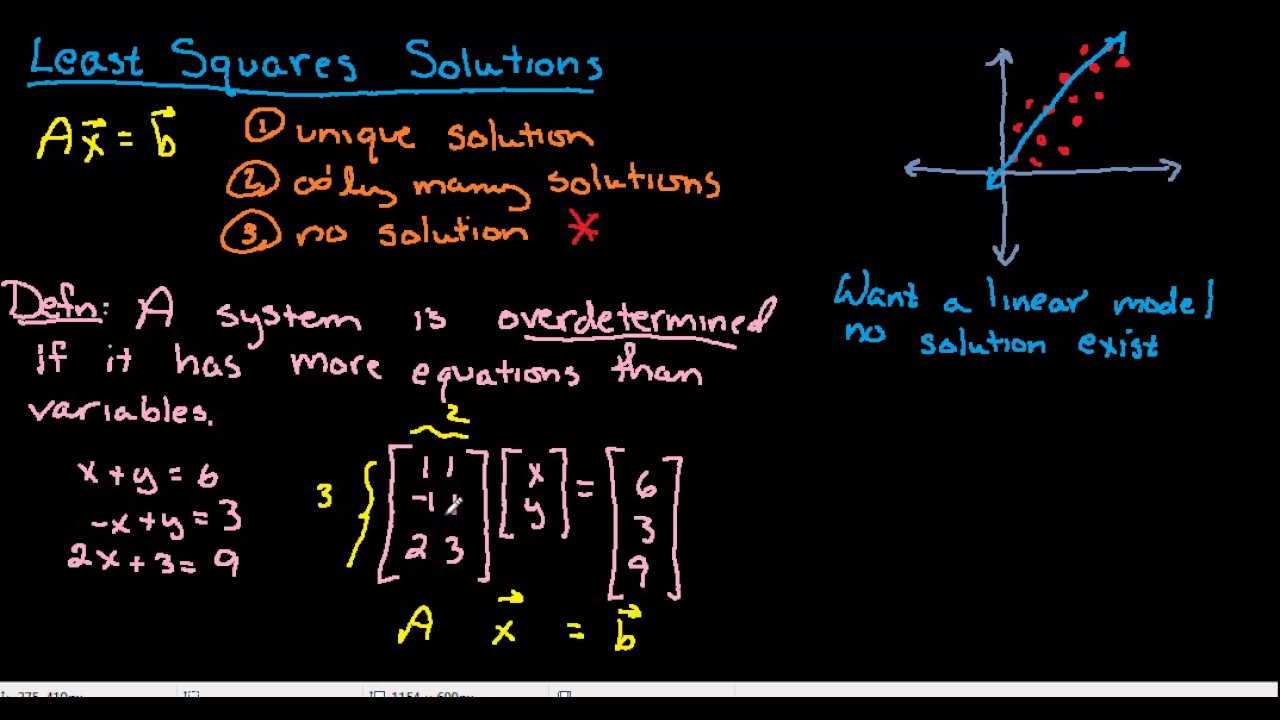 Least Squares Solutions
Ax⃗ = b⃗
① unique solution
② ∞'ly many solutions
③ no solution *
Want a linear model
no solution exist
Defn: A system is overdetermined
if it has more equations than
variables.
x+y=6
-x+y=3
2x+3=9
2
3
1 1
-1 1
2 3
x
y
=
6
3
9
A x⃗ = b⃗